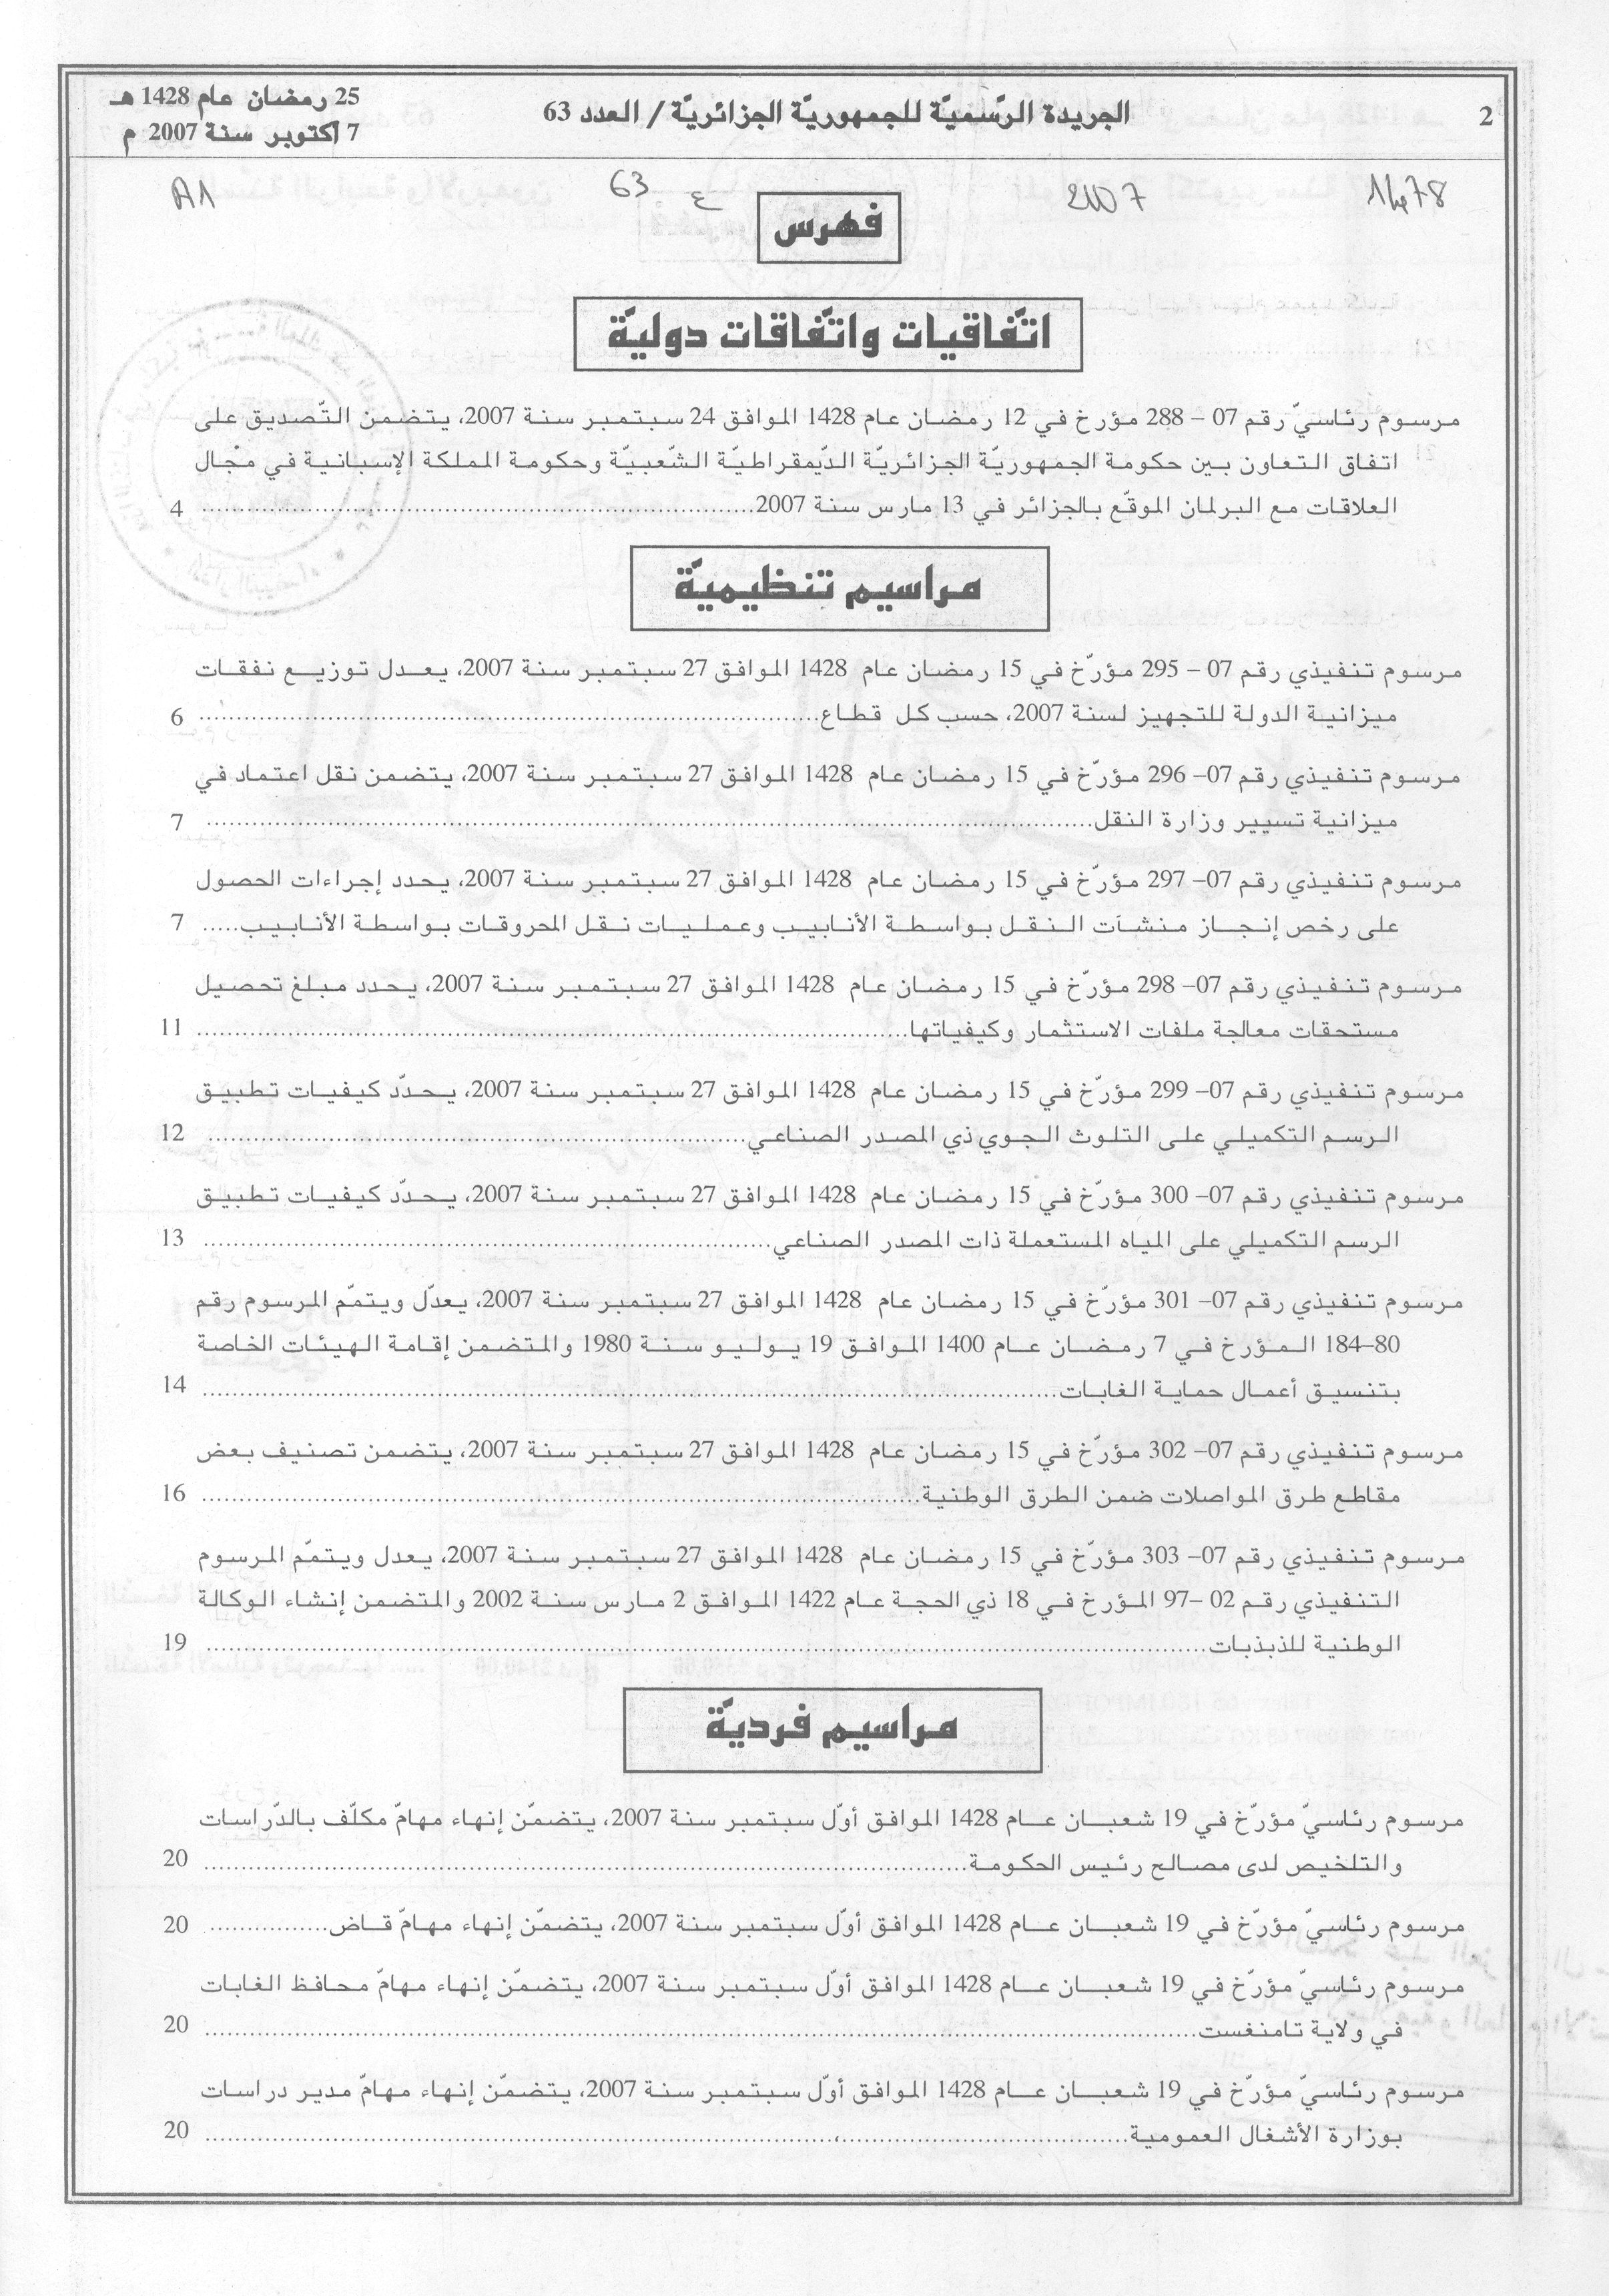 2
الجريدة الرّسميّة للجمهوريّة الجزائريّة / العدد 63
25 رمضان عام 1428 هـ
7 أكتوبر سنة 2007 م
1478 2007 ع 63 A1
فهرس
اتّفاقيات واتّفاقات دوليّة
مرسوم رئاسيّ رقم 07 – 288 مؤرخ في 12 رمضان عام 1428 الموافق 24 سبتمبر سنة 2007، يتضمن التّصديق على
اتفاق التعاون بين حكومة الجمهوريّة الجزائريّة الدّيمقراطيّة الشّعبيّة وحكومة المملكة الإسبانية في مجال
العلاقات مع البرلمان الموقّع بالجزائر في 13 مارس سنة 2007 .......... 4
مراسيم تنظيميّة
مرسوم تنفيذي رقم 07 – 295 مؤرّخ في 15 رمضان عام 1428 الموافق 27 سبتمبر سنة 2007، يعدل توزيع نفقات
ميزانية الدولة للتجهيز لسنة 2007، حسب كل قطاع .......... 6
مرسوم تنفيذي رقم 07– 296 مؤرّخ في 15 رمضان عام 1428 الموافق 27 سبتمبر سنة 2007، يتضمن نقل اعتماد في
ميزانية تسيير وزارة النقل .......... 7
مرسوم تنفيذي رقم 07– 297 مؤرّخ في 15 رمضان عام 1428 الموافق 27 سبتمبر سنة 2007، يحدد إجراءات الحصول
على رخص إنجاز منشآت النقل بواسطة الأنابيب وعمليات نقل المحروقات بواسطة الأنابيب ..... 7
مرسوم تنفيذي رقم 07– 298 مؤرّخ في 15 رمضان عام 1428 الموافق 27 سبتمبر سنة 2007، يحدد مبلغ تحصيل
مستحقات معالجة ملفات الاستثمار وكيفياتها .......... 11
مرسوم تنفيذي رقم 07– 299 مؤرّخ في 15 رمضان عام 1428 الموافق 27 سبتمبر سنة 2007، يحدّد كيفيات تطبيق
الرسم التكميلي على التلوث الجوي ذي المصدر الصناعي .......... 12
مرسوم تنفيذي رقم 07– 300 مؤرّخ في 15 رمضان عام 1428 الموافق 27 سبتمبر سنة 2007، يحدّد كيفيات تطبيق
الرسم التكميلي على المياه المستعملة ذات المصدر الصناعي .......... 13
مرسوم تنفيذي رقم 07– 301 مؤرّخ في 15 رمضان عام 1428 الموافق 27 سبتمبر سنة 2007، يعدّل ويتمّم المرسوم رقم
80–184 المؤرخ في 7 رمضان عام 1400 الموافق 19 يوليو سنة 1980 والمتضمن إقامة الهيئات الخاصة
بتنسيق أعمال حماية الغابات .......... 14
مرسوم تنفيذي رقم 07– 302 مؤرّخ في 15 رمضان عام 1428 الموافق 27 سبتمبر سنة 2007، يتضمن تصنيف بعض
مقاطع طرق المواصلات ضمن الطرق الوطنية .......... 16
مرسوم تنفيذي رقم 07– 303 مؤرّخ في 15 رمضان عام 1428 الموافق 27 سبتمبر سنة 2007، يعدل ويتمّم المرسوم
التنفيذي رقم 02 –97 المؤرخ في 18 ذي الحجة عام 1422 الموافق 2 مارس سنة 2002 والمتضمن إنشاء الوكالة
الوطنية للذبذبات .......... 19
مراسيم فرديّة
مرسوم رئاسيّ مؤرّخ في 19 شعبان عام 1428 الموافق أوّل سبتمبر سنة 2007، يتضمّن إنهاء مهامّ مكلّف بالدّراسات
والتلخيص لدى مصالح رئيس الحكومة .......... 20
مرسوم رئاسيّ مؤرّخ في 19 شعبان عام 1428 الموافق أوّل سبتمبر سنة 2007، يتضمّن إنهاء مهامّ قاض .......... 20
مرسوم رئاسيّ مؤرّخ في 19 شعبان عام 1428 الموافق أوّل سبتمبر سنة 2007، يتضمّن إنهاء مهامّ محافظ الغابات
في ولاية تامنغست .......... 20
مرسوم رئاسيّ مؤرّخ في 19 شعبان عام 1428 الموافق أوّل سبتمبر سنة 2007، يتضمّن إنهاء مهامّ مدير دراسات
بوزارة الأشغال العمومية .......... 20